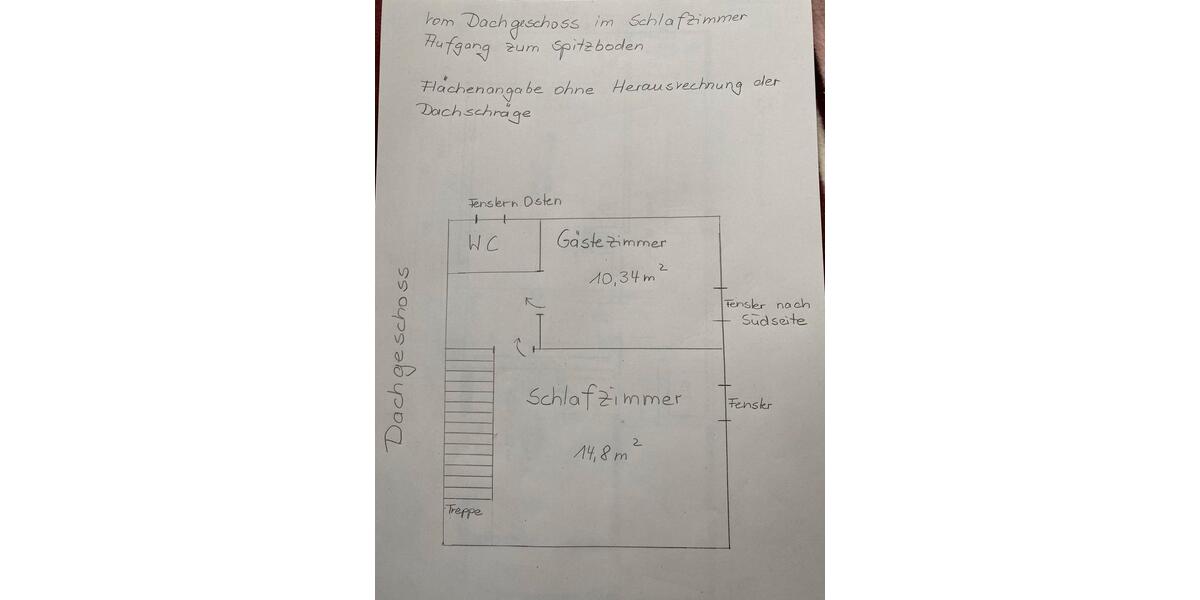 vom Dachgeschoss im Schlafzimmer
Aufgang zum Spitzboden
Flächenangabe ohne Herausrechnung der
Dachschräge
Fenster n Osten
WC
Gästezimmer
10,34 m²
Fenster nach
Südseite
Dachgeschoss
Schlafzimmer
Fenster
14,8 m²
Treppe